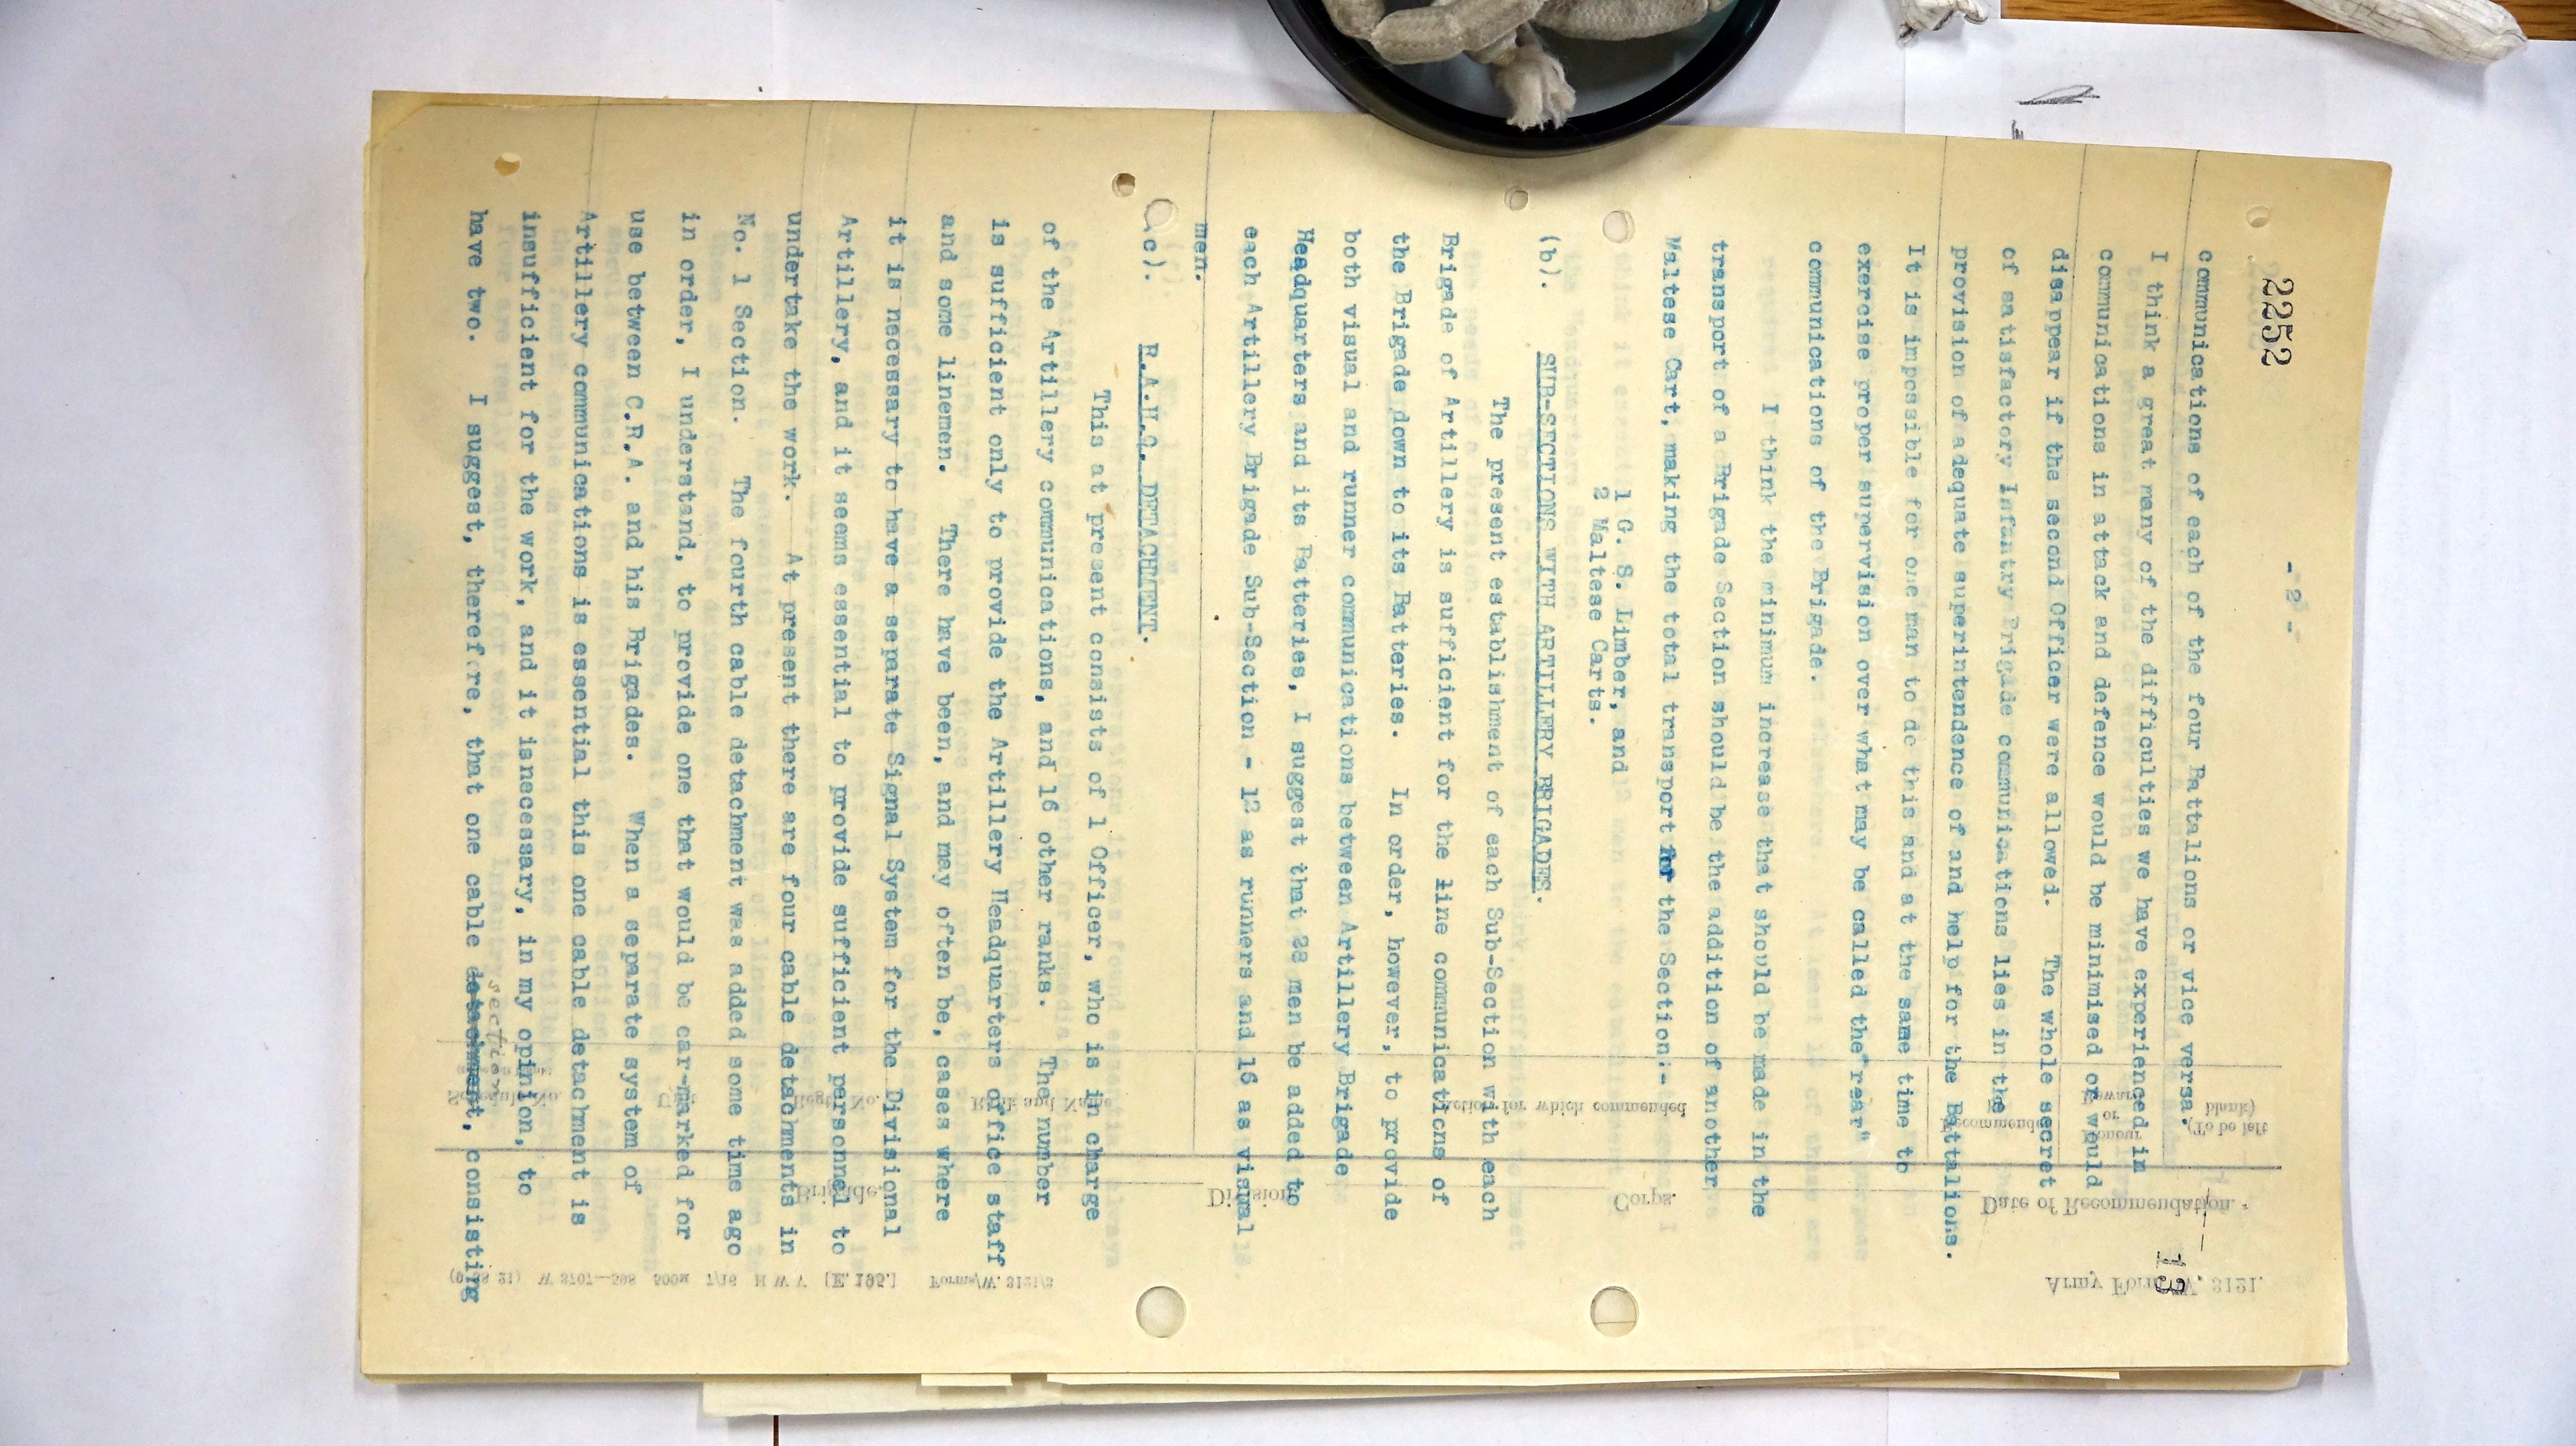 2252
- 2 -
13
communications of each of the four Battalions or vice versa.
I think a great many of the difficulties we have experienced in
communications in attack and defence would be minimised or would
disappear if the second Officer were allowed. The whole secret
of satisfactory Infantry Brigade communications lies in the
provision of adequate superintendence of and help for the Battalions.
It is impossible for one man to do this and at the same time to
exercise proper supervision over what may be called the "rear"
communications of the Brigade.
I think the minimum increase that should be made in the
transport of a Brigade Section should be the addition of another
Maltese Cart, making the total transport for the Section:-
1 G. S. Limber, and
2 Maltese Carts.
(b). SUB-SECTIONS WITH ARTILLERY BRIGADES.
The present establishment of each Sub-Section with each
Brigade of Artillery is sufficient for the line communications of
the Brigade down to its Batteries. In order, however, to provide
both visual and runner communications between Artillery Brigade
Headquarters and its Batteries, I suggest that 28 men be added to
each Artillery Brigade Sub-Section - 12 as runners and 16 as visual
men.
(c). R.A.H.Q. DETACHMENT.
This at present consists of 1 Officer, who is in charge
of the Artillery communications, and 16 other ranks. The number
is sufficient only to provide the Artillery Headquarters office staff
and some linemen. There have been, and may often be, cases where
it is necessary to have a separate Signal System for the Divisional
Artillery, and it seems essential to provide sufficient personnel to
undertake the work. At present there are four cable detachments in
No. 1 Section. The fourth cable detachment was added some time ago
in order, I understand, to provide one that would be ear-marked for
use between C.R.A. and his Brigades. When a separate system of
Artillery communications is essential this one cable detachment is
insufficient for the work, and it isnecessary, in my opinion, to
have two. I suggest, therefore, that one cable detachment, consisting
section
Army Form W. 3121.
Date of Recommendation.
Corps.
Division
Brigade.
(To be left
blank)
Honour
or
Reward
Recommended
Action for which commended
Rank and Name
Regtl. No.